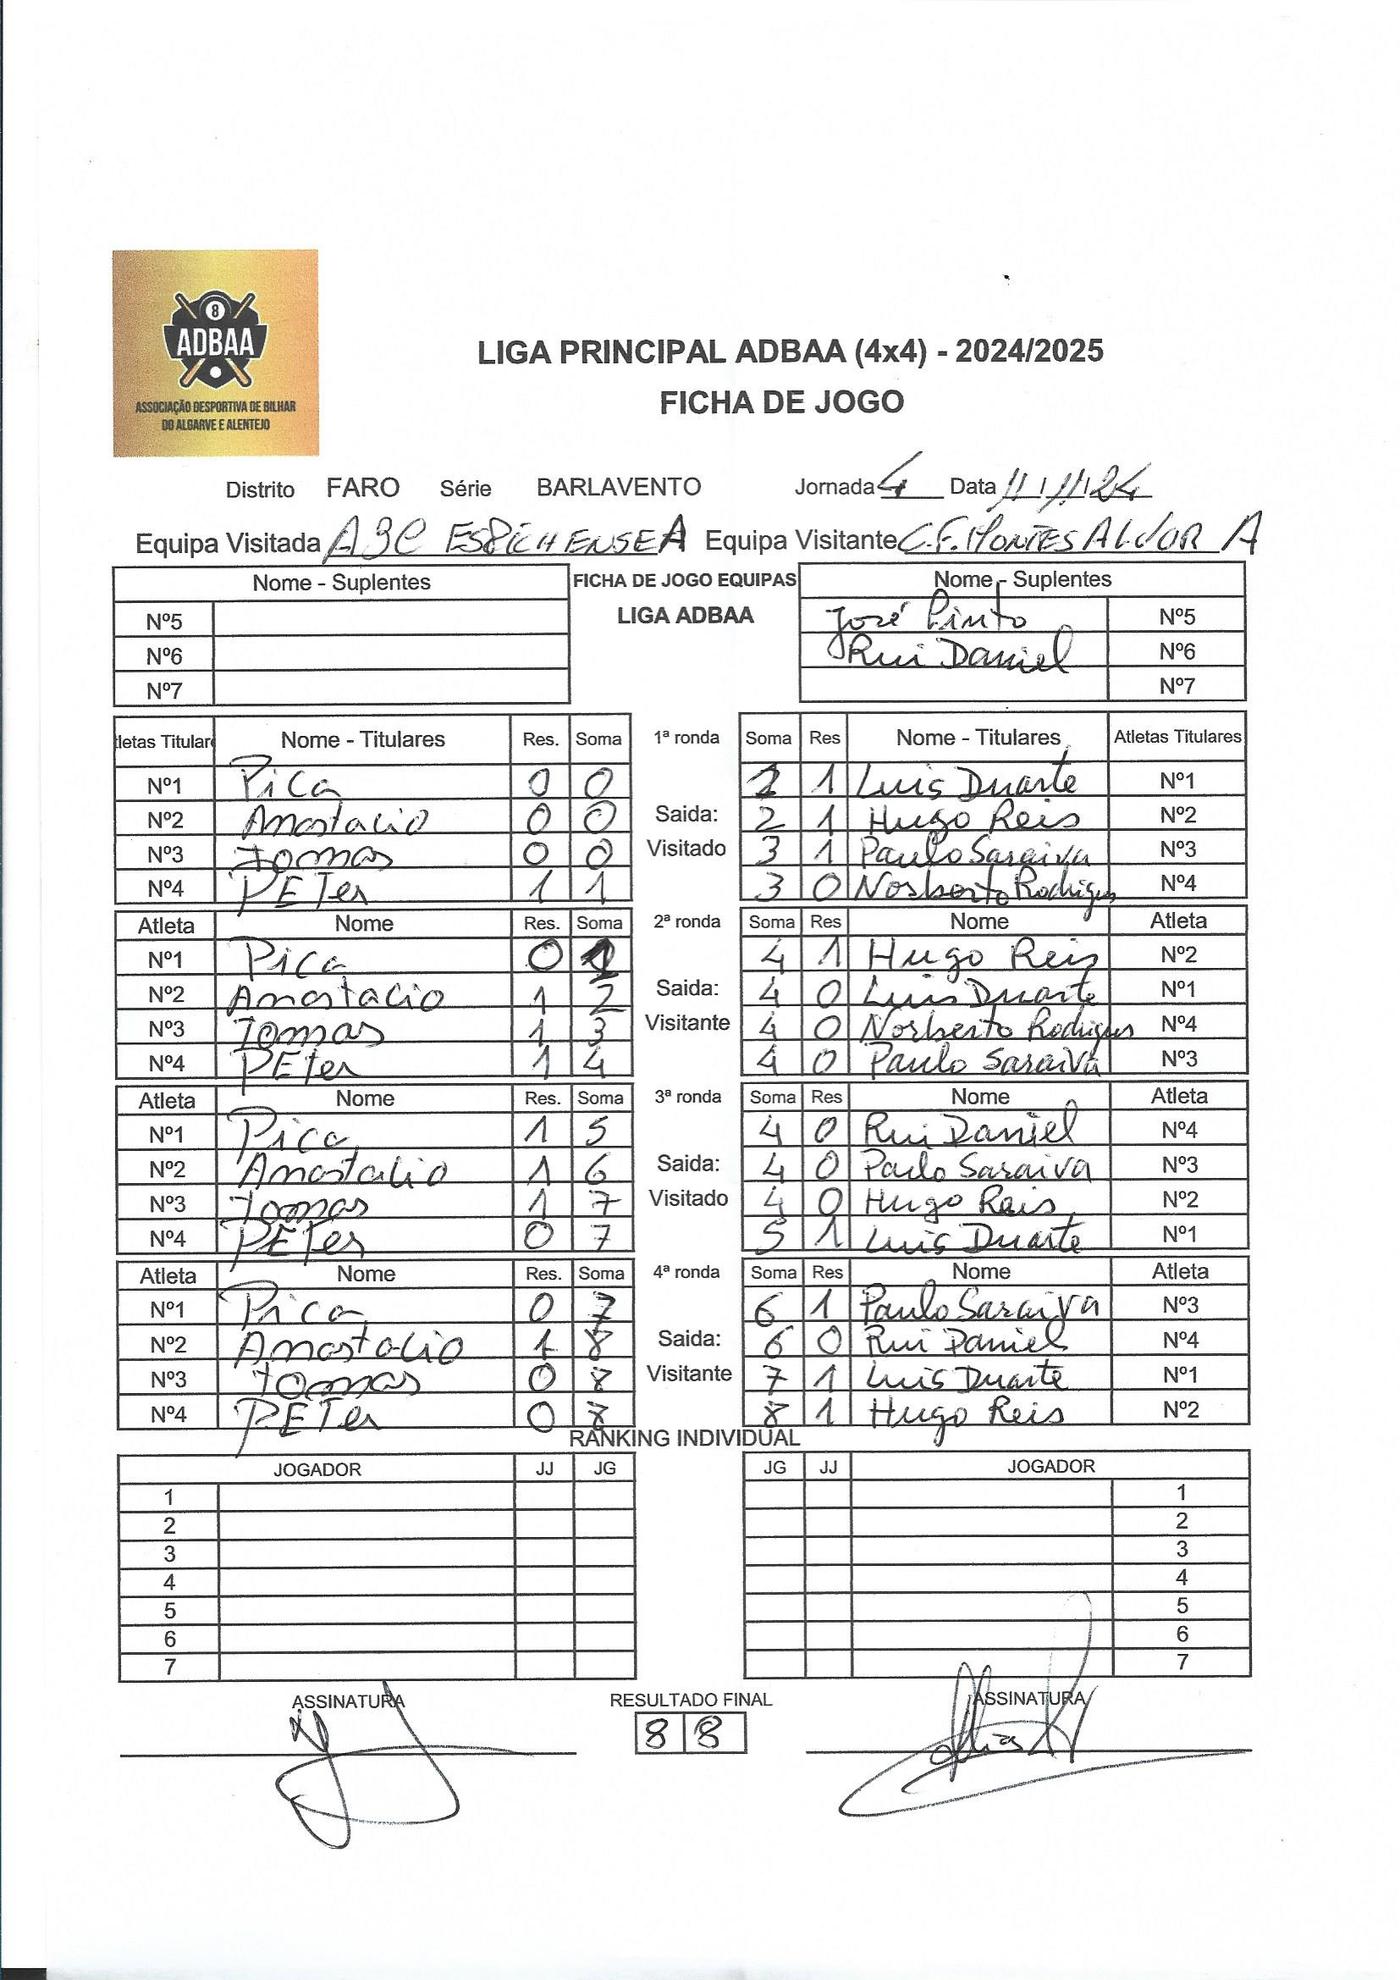 8
ADBAA
ASSOCIAÇÃO DESPORTIVA DE BILHAR
DO ALGARVE E ALENTEJO
LIGA PRINCIPAL ADBAA (4x4) - 2024/2025
FICHA DE JOGO
Distrito FARO Série BARLAVENTO Jornada 4 Data 11/11/24
Equipa Visitada ABC ESPICHENSE A Equipa Visitante C.F. MONTES ALVOR A
Nome - Suplentes FICHA DE JOGO EQUIPAS Nome - Suplentes
Nº5 LIGA ADBAA José Pinto Nº5
Nº6 Rui Daniel Nº6
Nº7 Nº7
letas Titular Nome - Titulares Res. Soma 1ª ronda Soma Res Nome - Titulares Atletas Titulares
Nº1 Pica 0 0 1 1 Luis Duarte Nº1
Nº2 Anastacio 0 0 Saida: 2 1 Hugo Reis Nº2
Nº3 Tomas 0 0 Visitado 3 1 Paulo Saraiva Nº3
Nº4 PETer 1 1 3 0 Norberto Rodrigues Nº4
Atleta Nome Res. Soma 2ª ronda Soma Res Nome Atleta
Nº1 Pica 0 1 4 1 Hugo Reis Nº2
Nº2 Anastacio 1 2 Saida: 4 0 Luis Duarte Nº1
Nº3 Tomas 1 3 Visitante 4 0 Norberto Rodrigues Nº4
Nº4 PETer 1 4 4 0 Paulo Saraiva Nº3
Atleta Nome Res. Soma 3ª ronda Soma Res Nome Atleta
Nº1 Pica 1 5 4 0 Rui Daniel Nº4
Nº2 Anastacio 1 6 Saida: 4 0 Paulo Saraiva Nº3
Nº3 Tomas 1 7 Visitado 4 0 Hugo Reis Nº2
Nº4 PETer 0 7 5 1 Luis Duarte Nº1
Atleta Nome Res. Soma 4ª ronda Soma Res Nome Atleta
Nº1 Pica 0 7 6 1 Paulo Saraiva Nº3
Nº2 Anastacio 1 8 Saida: 6 0 Rui Daniel Nº4
Nº3 Tomas 0 8 Visitante 7 1 Luis Duarte Nº1
Nº4 PETer 0 8 8 1 Hugo Reis Nº2
RANKING INDIVIDUAL
JOGADOR JJ JG JG JJ JOGADOR
1 1
2 2
3 3
4 4
5 5
6 6
7 7
ASSINATURA RESULTADO FINAL ASSINATURA
8 8